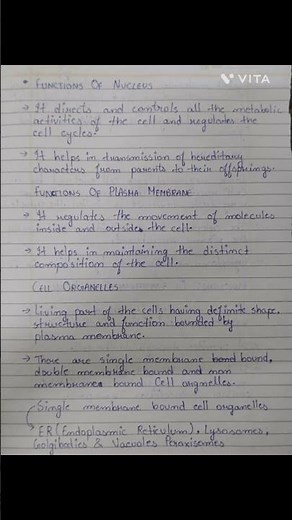 VITA
• FUNCTIONS OF NUCLEUS
→ It directs and controls all the metabolic
activities of the cell and regulates the
cell cycles.
→ It helps in transmission of hereditary
characters from parents to their offsprings.
FUNCTIONS OF PLASMA MEMBRANE
→ It regulates the movement of molecules
inside and outside the cell.
→ It helps in maintaining the distinct
composition of the cell.
CELL ORGANELLES
→ Living part of the cells having definite shape,
structure and function bounded by
plasma membrane.
→ There are single membrane bound,
double membrane bound and non
membrane bound Cell orgnelles.
Single membrane bound cell organelles
→ ER (Endoplasmic Reticulum), Lysosomes,
Golgibodies & Vacuoles Peroxisomes